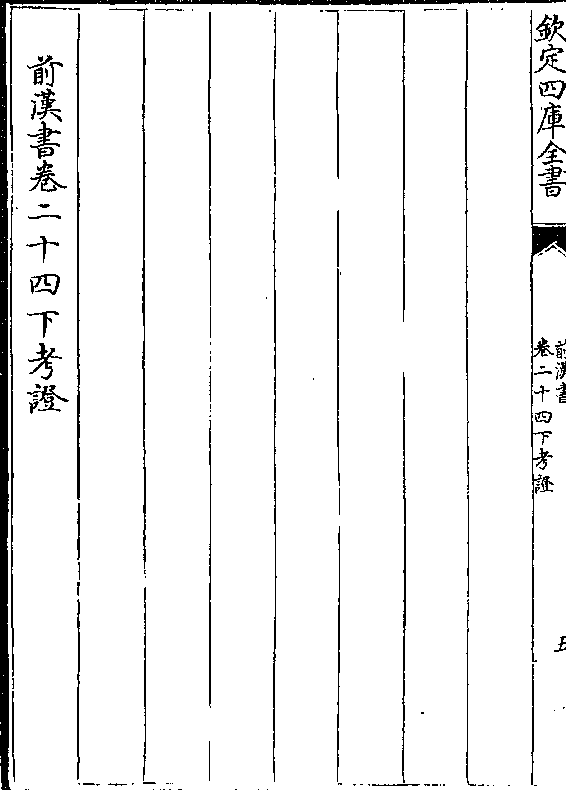 欽定四庫全書
前漢書
卷二十四下考證
五
前漢書卷二十四下考證